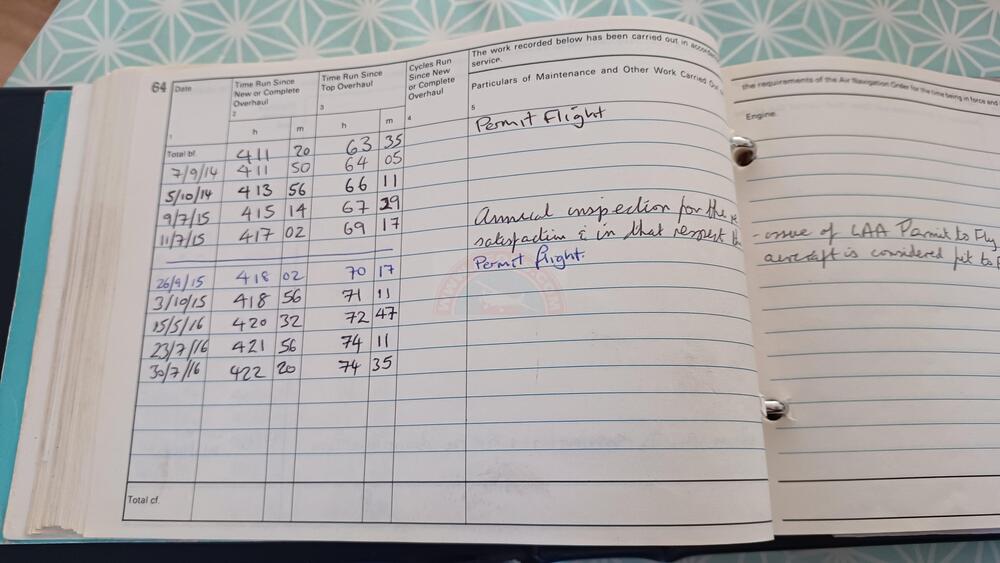 64
Date
1
Time Run Since
New or Complete
Overhaul
2
h m
Time Run Since
Top Overhaul
3
h m
Cycles Run
Since New
or Complete
Overhaul
4
The work recorded below has been carried out in
service.
Particulars of Maintenance and Other Work Carried Out
5
the requirements of the Air Navigation Order for the time being in force and
Engine
Permit Flight
Total bf. 411 20 63 35
7/9/14 411 50 64 05
5/10/14 413 56 66 11
9/7/15 415 14 67 29
11/7/15 417 02 69 17
Annual inspection for the re -issue of LAA Permit to Fly
satisfaction & in that respect the aircraft is considered fit to
26/9/15 418 02 70 17 Permit flight.
3/10/15 418 56 71 11
15/5/16 420 32 72 47
23/7/16 421 56 74 11
30/7/16 422 20 74 35
Total cf.